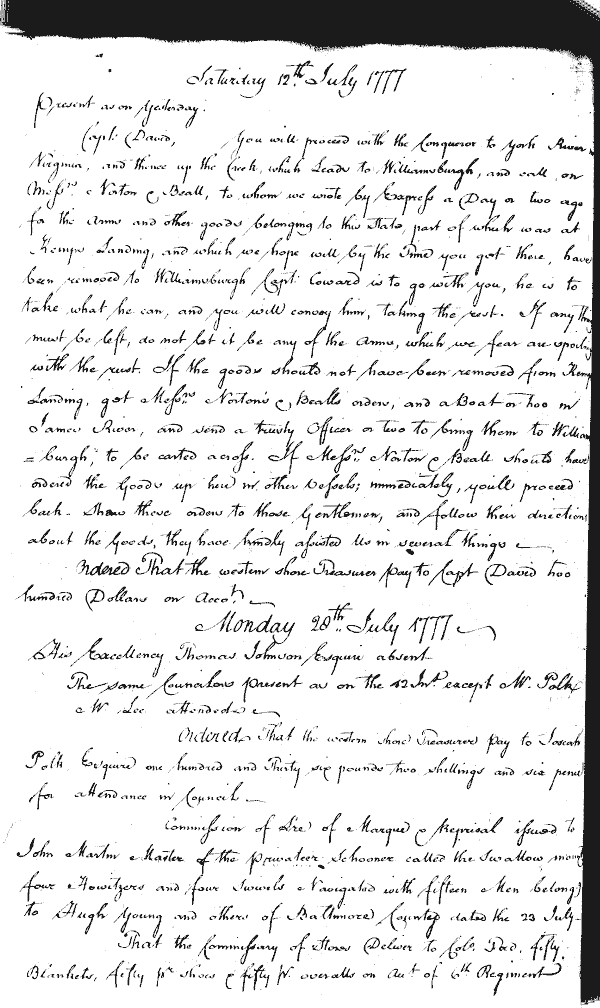 Saturday 12th July 1777
Present as on Yesterday.
Capt. David, You will proceed with the Conqueror to York River in
Virginia, and thence up the Creek, which Leads to Williamsburgh, and call on
Messrs Norton & Beall, to whom we wrote by Express a Day or two ago
for the Arms and other goods belonging to this State, part of which was at
Kemps Landing, and which we hope will by the Time you get there, have
been removed to Williamsburgh Capt. Coward is to go with you, he is to
take what he can, and you will convoy him, taking the rest. If any thing
must be left, do not let it be any of the Arms, which we fear are spoiling
with the rust. If the goods should not have been removed from Kemps
Landing, get Messrs Norton's & Bealls orders, and a Boat or two in
James River, and send a trusty Officer or two to bring them to William
=burgh, to be carted across. If Messrs Norton & Beall should have
ordered the Goods up here in other Vessels; immediately, you'll proceed
back - Shew these orders to those Gentlemen, and follow their directions
about the Goods, they have kindly assisted Us in several things
Ordered That the western shore Treasurer pay to Capt David two
hundred Dollars on Acct.
Monday 28th July 1777
His Excellency Thomas Johnson Esquire absent
The same Councilors present as on the 12 Inst except Mr. Polk
Mr Lee attended
Ordered That the western shore Treasurer pay to Josiah
Polk Esquire one hundred and Thirty six pounds two shillings and six pence
for attendance in Council
Commission of Lre of Marque & Reprisal issued to
John Martin Master of the privateer Schooner called the Swallow mount
four Howitzers and four Swivels Navigated with fifteen Men belong
to Hugh Young and others of Baltimore County dated the 23 July
That the Commissary of Stores Deliver to Colo. Ford, fifty
Blankets, fifty pr shoes & fifty pr overalls on Act of 6th Regiment